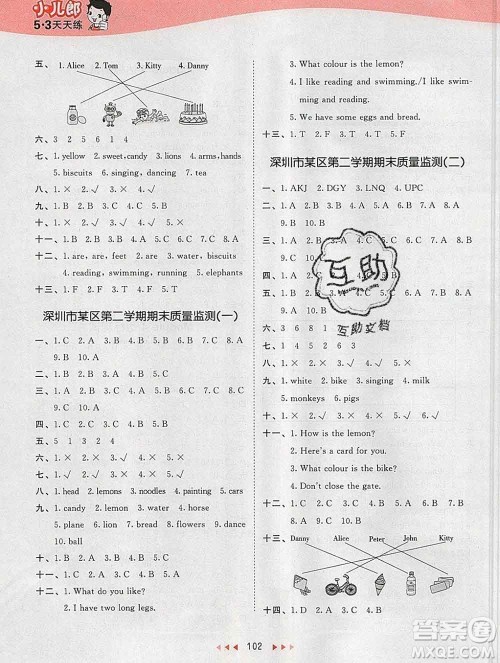 小儿郎
5·3天天练
五、 1. Alice 2. Tom 3. Kitty 4. Danny
六、 3 2 5 6 1 4
七、 1. yellow 2. sweet, candy 3. lions 4. arms, hands
5. biscuits 6. singing, dancing 7. tea
八、 1. × 2. √ 3. × 4. × 5. √
九、 1. B 2. B 3. A 4. C 5. C 6. C 7. A 8. B
9. B 10. A
十、 1. × 2. √ 3. × 4. × 5. √
十一、 1. C 2. B 3. A 4. B 5. C 6. B 7. A 8. C
十二、 1. are, are, feet 2. is, water 3. are, biscuits
4. reading, swimming, running 5. elephants
深圳市某区第二学期期末质量监测(一)
一、 1. C 2. B 3. C 4. A
二、 1. B 2. A 3. C 4. A 5. B 6. C 7. A 8. B
9. C 10. A
三、 1. C 2. A 3. B 4. B 5. A 6. A 7. B 8. C
9. C 10. B
四、 1. A 2. B 3. C 4. A 5. C 6. B
五、 5 1 3 2 4
六、 1. × 2. × 3. √ 4. √ 5. ×
七、 1. √ 2. × 3. √ 4. × 5. ×
八、 1. head 2. lemons 3. noodles 4. painting 5. cat
九、 1. candy 2. lemon 3. water 4. horse
5. plane 6. lion 7. bread 8. dance
十、 1. C 2. A 3. B 4. A 5. B 6. A 7. C 8. B
9. B 10. B
十一、 1. C 2. D 3. B 4. E 5. A
十二、 1. How is the lemon?
2. I have two long legs.
3. What colour is the flower?
4. I like reading and swimming./I like swim-
ming and reading.
5. We have some eggs and bread.
十三、 1. T 2. F 3. F 4. T 5. T
深圳市某区第二学期期末质量监测(二)
一、 1. AKJ 2. DGY 3. LNQ 4. UPC
二、 1. B 2. A 3. A
9. B 10. B
四、
六、 3 6 8 1
八、 1. √ 2. × 3. √
九、 1. white 2. bike 3. singing 4. milk
5. monkeys 6. pigs
十、 1. C 2. B 3. A 4. C 5. A 6. A 7. B 8. B
9. C 10. B
十一、 1. How is the lemon?
2. Here's a card for you.
3. What colour is the bike?
4. Don't close the gate.
十二、 1. C 2. A 3. D 4. E 5. B
十三、 Danny Alice Peter John Kitty
十四、 1. D 2. A 3. C 4. E 5. B
互助
互助文档
102
答案圈
MXQE.COM